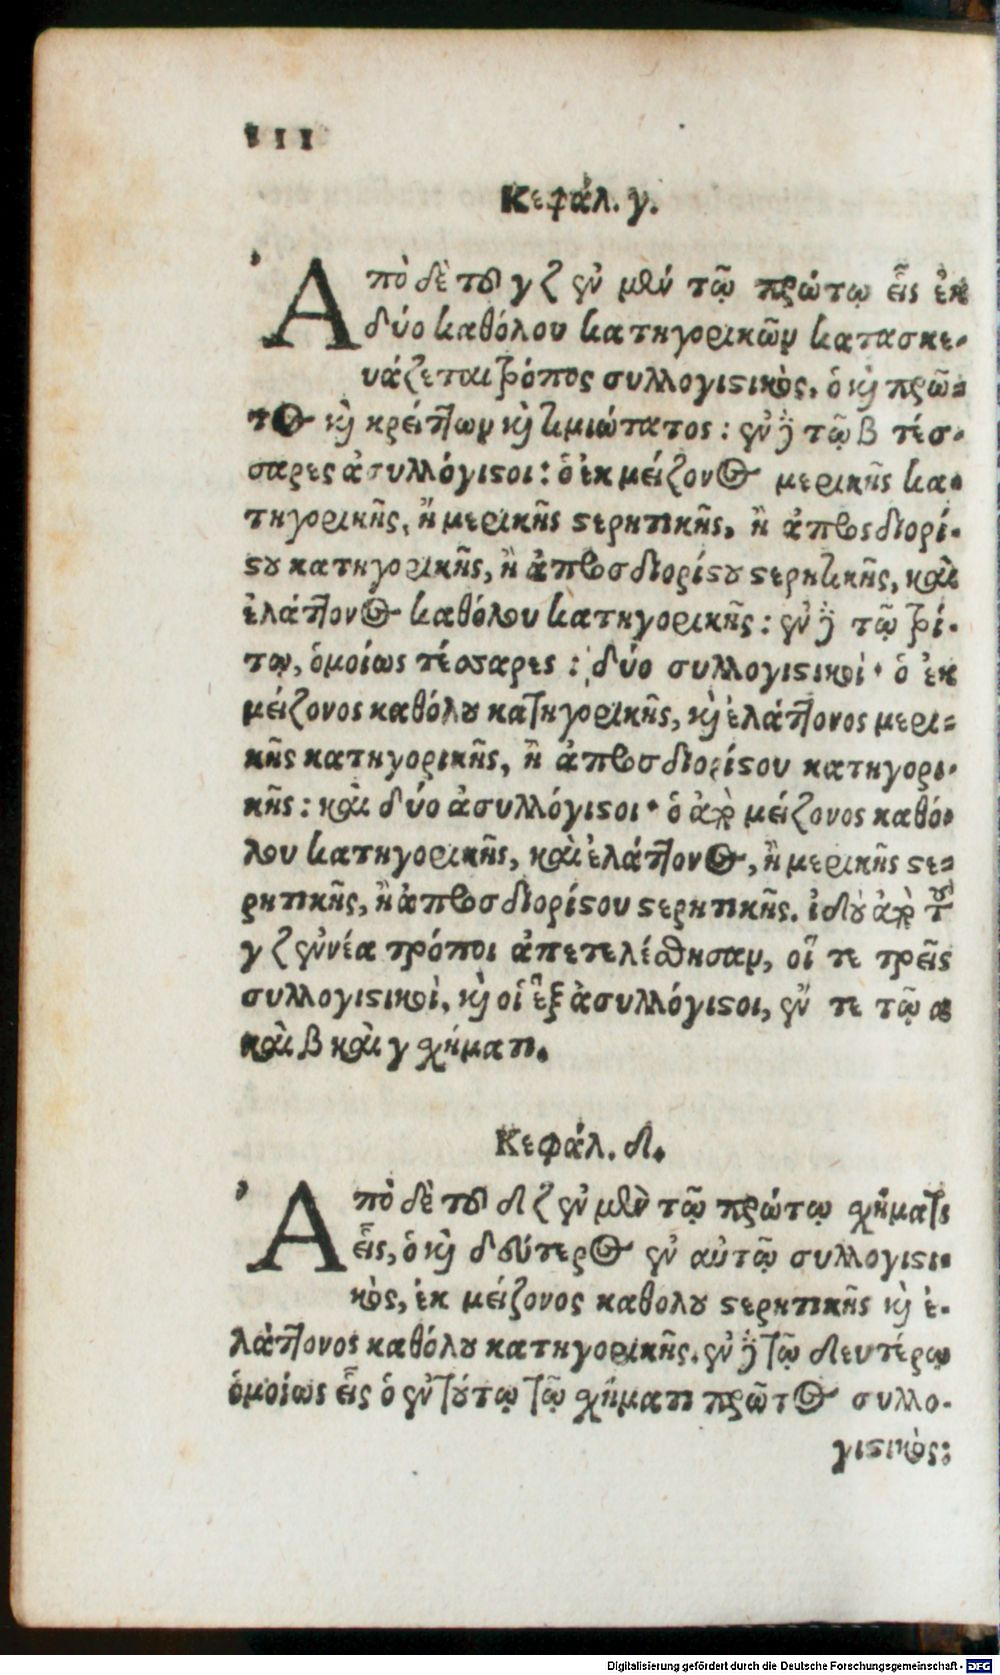 III
Κεφάλ. γ.
Ἀπὸ δὲ τοῦ γ ζ ἐν μὲν τῷ πρώτῳ εἷς ἐκ
δύο καθόλου κατηγορικῶν κατασκε-
υάζεται τρόπος συλλογιστικὸς, ὁ καὶ πρῶ-
τος καὶ κρείττων καὶ τιμιώτατος: ἐν δὲ τῷ β τέσ-
σαρες ἀσυλλόγιστοι: ὁ ἐκ μείζονος μερικῆς κα-
τηγορικῆς, ἢ μερικῆς στερητικῆς, ἢ ἀπροσδιορί-
στου κατηγορικῆς, ἢ ἀπροσδιορίστου στερητικῆς, καὶ
ἐλάττονος καθόλου κατηγορικῆς: ἐν δὲ τῷ τρί-
τῳ, ὁμοίως τέσσαρες: δύο συλλογιστικοί· ὁ ἐκ
μείζονος καθόλου κατηγορικῆς, καὶ ἐλάττονος μερι-
κῆς κατηγορικῆς, ἢ ἀπροσδιορίστου κατηγορι-
κῆς: καὶ δύο ἀσυλλόγιστοι· ὁ ἀπὸ μείζονος καθό-
λου κατηγορικῆς, καὶ ἐλάττονος, ἢ μερικῆς στε-
ρητικῆς, ἢ ἀπροσδιορίστου στερητικῆς. ἰδοὺ ἀπὸ τοῦ
γ ζ ἐννέα τρόποι ἀπετελέσθησαν, οἵ τε τρεῖς
συλλογιστικοὶ, καὶ οἱ ἓξ ἀσυλλόγιστοι, ἔν τε τῷ α
καὶ β καὶ γ σχήματι.
Κεφάλ. δ.
Ἀπὸ δὲ τοῦ δ ζ ἐν μὲν τῷ πρώτῳ σχήματι
εἷς, ὁ καὶ δεύτερος ἐν αὐτῷ συλλογιστι-
κὸς, ἐκ μείζονος καθολου στερητικῆς καὶ ἐ-
λάττονος καθόλου κατηγορικῆς. ἐν δὲ τῷ δευτέρῳ
ὁμοίως εἷς ὁ ἐν τούτῳ τῷ σχήματι πρῶτος συλλο-
γιστικὸς:
Digitalisierung gefördert durch die Deutsche Forschungsgemeinschaft - DFG